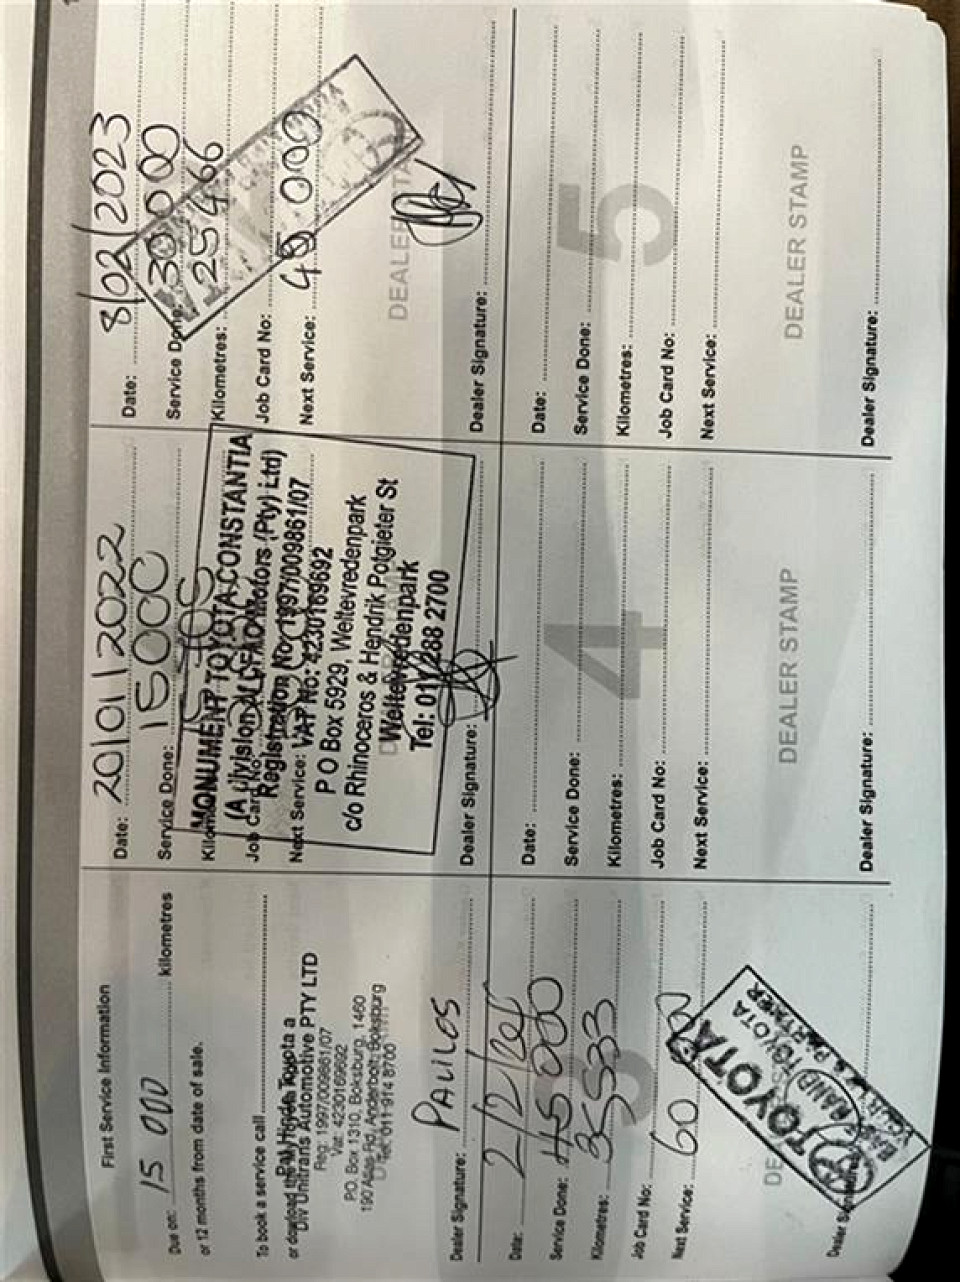 First Service Information
Due on: 15 000 kilometres
or 12 months from date of sale.
To book a service call
or download the My Toyota a
Pat Hinde Toyota
Div Unitrans Automotive PTY LTD
Reg: 1997/009861/07
Vat: 4230169692
P.O. Box 1310, Boksburg, 1460
190 Atlas Rd, Anderbolt, Boksburg
Tel: 011-914 8700
Dealer Signature: PAULOS
Date: 20/01/2022
Service Done: 15000
Kilometres:
Job Card No:
Next Service:
MONUMENT TOYOTA CONSTANTIA
(A division of CFAO Motors (Pty) Ltd)
Registration No: 1997/009861/07
VAT No: 4230169692
P O Box 5929, Weltevredenpark
c/o Rhinoceros & Hendrik Potgieter St
Weltevredenpark
Tel: 011 288 2700
Dealer Signature:
Date: 8/02/2023
Service Done: 30000
Kilometres: 25466
Job Card No:
Next Service: 45 000
DEALER STAMP
Dealer Signature:
3
Date: 2/2/
Service Done: 45000
Kilometres: 35533
Job Card No:
Next Service: 60 000
TOYOTA
EAST RAND TOYOTA
YOUR PARTNER
Dealer Signature:
4
Date:
Service Done:
Kilometres:
Job Card No:
Next Service:
DEALER STAMP
Dealer Signature:
5
Date:
Service Done:
Kilometres:
Job Card No:
Next Service:
DEALER STAMP
Dealer Signature: